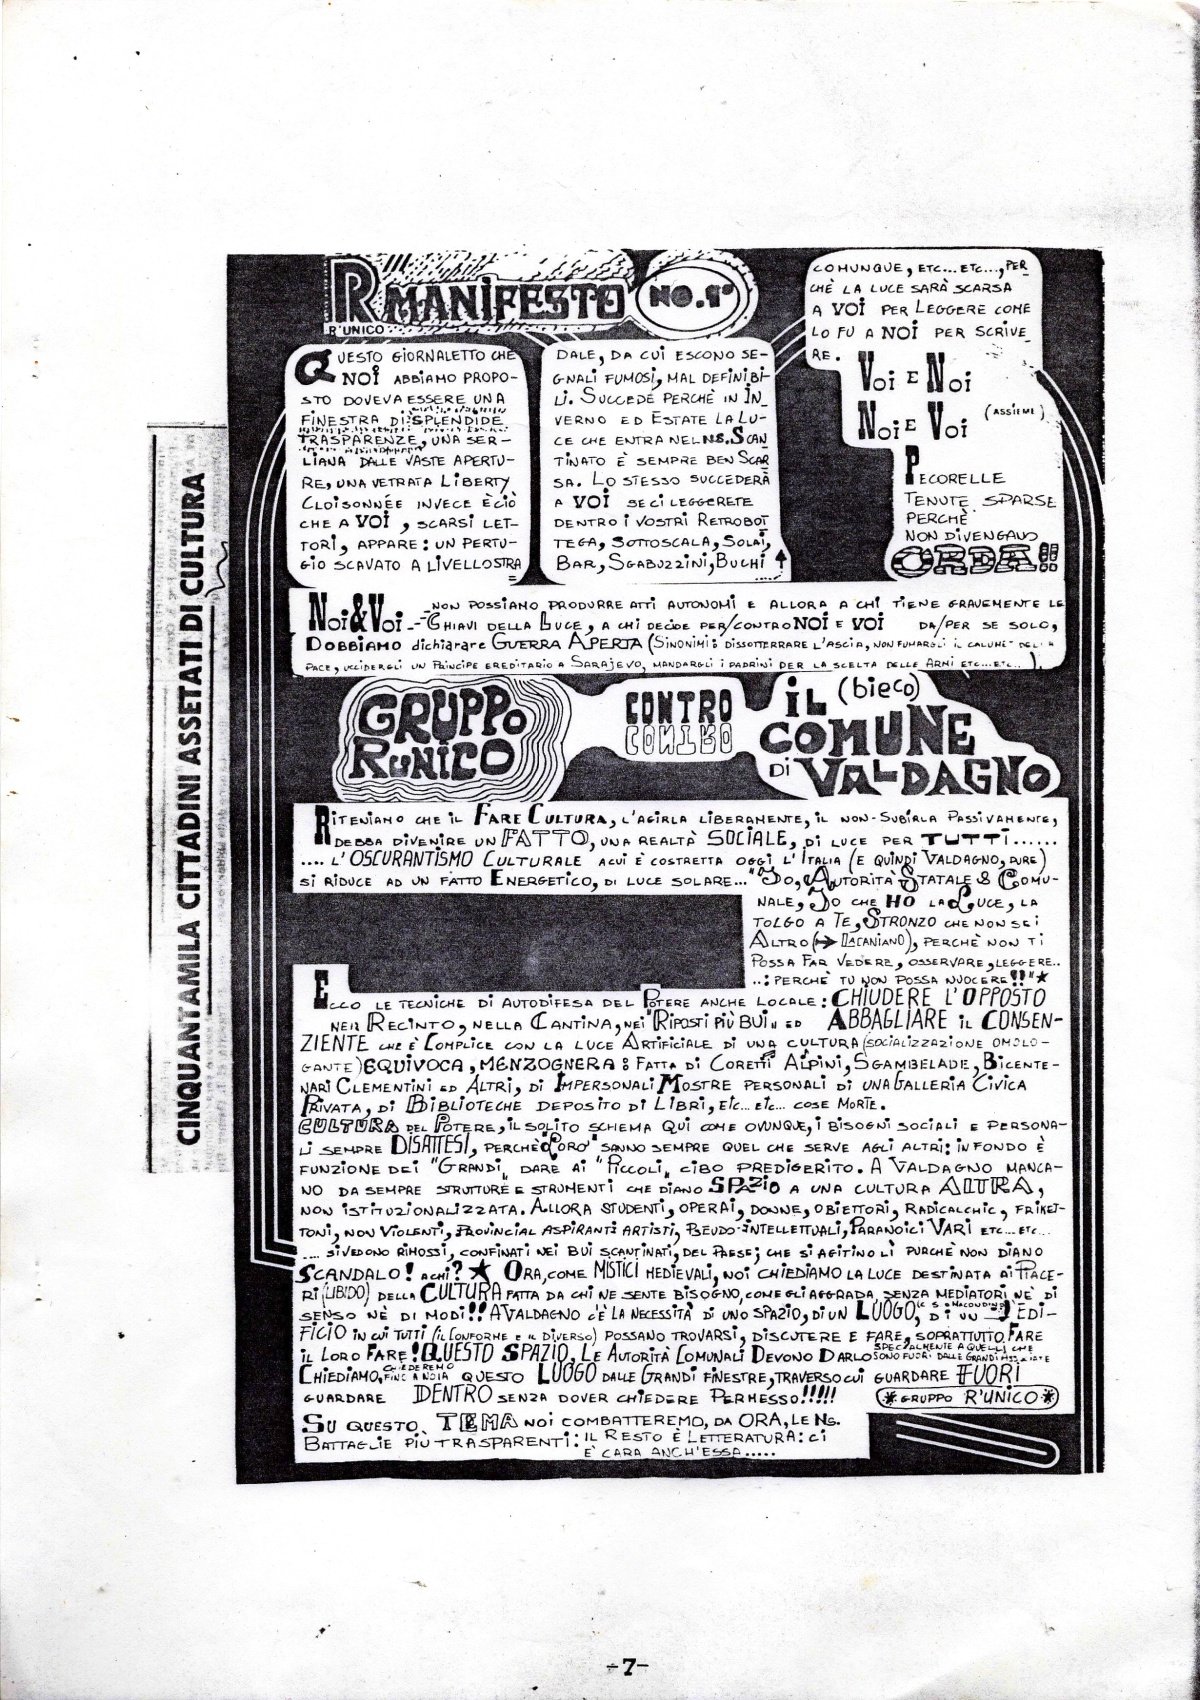 CINQUANTAMILA CITTADINI ASSETATI DI CULTURA
R MANIFESTO NO. 1°
R'UNICO
QUESTO GIORNALETTO CHE
NOI ABBIAMO PROPO-
STO DOVEVA ESSERE UNA
FINESTRA DI SPLENDIDE
TRASPARENZE, UNA SER-
LIANA DALLE VASTE APERTU-
RE, UNA VETRATA LIBERTY
CLOISONNÉE INVECE È CIÒ
CHE A VOI, SCARSI LET-
TORI, APPARE: UN PERTU-
GIO SCAVATO A LIVELLO STRA
DALE, DA CUI ESCONO SE-
GNALI FUMOSI, MAL DEFINIBI-
LI. SUCCEDE PERCHÈ IN IN_
VERNO ED ESTATE LA LU-
CE CHE ENTRA NEL NS. SCAN_
TINATO È SEMPRE BEN SCAR_
SA. LO STESSO SUCCEDERÀ
A VOI SE CI LEGGERETE
DENTRO I VOSTRI RETROBOT_
TEGA, SOTTOSCALA, SOLAI,
BAR, SGABUZZINI, BUCHI
COMUNQUE, ETC... ETC..., PER_
CHÈ LA LUCE SARÀ SCARSA
A VOI PER LEGGERE COME
LO FU A NOI PER SCRIVE_
RE.
VOI E NOI
NOI E VOI (ASSIEME)
PECORELLE
TENUTE SPARSE
PERCHÈ
NON DIVENGANO
ORDA!!
NOI & VOI -- NON POSSIAMO PRODURRE ATTI AUTONOMI E ALLORA A CHI TIENE GRAVEMENTE LE
CHIAVI DELLA LUCE, A CHI DECIDE PER/CONTRO NOI E VOI DA/PER SE SOLO,
DOBBIAMO dichiarare GUERRA APERTA (SINONIMI: DISSOTTERRARE L'ASCIA, NON FUMARGLI IL CALUME DELLA
PACE, UCCIDERGLI UN PRINCIPE EREDITARIO A SARAJEVO, MANDARGLI I PADRINI PER LA SCELTA DELLE ARMI ETC... ETC...).
GRUPPO RUNICO
CONTRO
CONTRO
IL (bieco)
COMUNE
DI VALDAGNO
RITENIAMO CHE IL FARE CULTURA, L'AGIRLA LIBERAMENTE, IL NON-SUBIRLA PASSIVAMENTE,
DEBBA DIVENIRE UN FATTO, UNA REALTÀ SOCIALE, DI LUCE PER TUTTI......
.... L'OSCURANTISMO CULTURALE A CUI È COSTRETTA OGGI L'ITALIA (E QUINDI VALDAGNO, PURE)
SI RIDUCE AD UN FATTO ENERGETICO, DI LUCE SOLARE... "IO, AUTORITÀ STATALE & COMU-
NALE, IO CHE HO LA LUCE, LA
TOLGO A TE, STRONZO CHE NON SEI
ALTRO (→ LACANIANO), PERCHÈ NON TI
POSSA FAR VEDERE, OSSERVARE, LEGGERE..
..: PERCHÈ TU NON POSSA NUOCERE!!"★
ECCO LE TECNICHE DI AUTODIFESA DEL POTERE ANCHE LOCALE: CHIUDERE L'OPPOSTO
NEL RECINTO, NELLA CANTINA, NEI "RIPOSTI PIÙ BUI" ED ABBAGLIARE IL CONSEN-
ZIENTE CHE È COMPLICE CON LA LUCE ARTIFICIALE DI UNA CULTURA (SOCIALIZZAZIONE OMOLO-
GANTE) EQUIVOCA, MENZOGNERA: FATTA DI CORETTI ALPINI, SGAMBELADE, BICENTE-
NARI CLEMENTINI ED ALTRI, DI IMPERSONALI MOSTRE PERSONALI DI UNA GALLERIA CIVICA
PRIVATA, DI BIBLIOTECHE DEPOSITO DI LIBRI, ETC... ETC... COSE MORTE.
CULTURA DEL POTERE, IL SOLITO SCHEMA QUI COME OVUNQUE, I BISOGNI SOCIALI E PERSONA-
LI SEMPRE DISATTESI, PERCHÈ "LORO" SANNO SEMPRE QUEL CHE SERVE AGLI ALTRI: IN FONDO È
FUNZIONE DEI "GRANDI" DARE AI "PICCOLI" CIBO PREDIGERITO. A VALDAGNO MANCA-
NO DA SEMPRE STRUTTURE E STRUMENTI CHE DIANO SPAZIO A UNA CULTURA ALTRA,
NON ISTITUZIONALIZZATA. ALLORA STUDENTI, OPERAI, DONNE, OBIETTORI, RADICALCHIC, FRIKET-
TONI, NON VIOLENTI, PROVINCIAL ASPIRANTI ARTISTI, PSEUDO-INTELLETTUALI, PARANOICI VARI ETC... ETC...
.... SI VEDONO RIMOSSI, CONFINATI NEI BUI SCANTINATI, DEL PAESE; CHE SI AGITINO LÌ PURCHÈ NON DIANO
SCANDALO! A CHI? ★ ORA, COME MISTICI MEDIEVALI, NOI CHIEDIAMO LA LUCE DESTINATA AI PIACE-
RI (LIBIDO) DELLA CULTURA FATTA DA CHI NE SENTE BISOGNO, COME GLI AGGRADA, SENZA MEDIATORI NÈ DI
SENSO NÈ DI MODI!! A VALDAGNO C'È LA NECESSITÀ DI UNO SPAZIO, DI UN LUOGO, DI UN EDI-
FICIO IN CUI TUTTI (IL CONFORME E IL DIVERSO) POSSANO TROVARSI, DISCUTERE E FARE, SOPRATTUTTO FARE
IL LORO FARE! QUESTO SPAZIO, LE AUTORITÀ COMUNALI DEVONO DARLO SPECIALMENTE A QUELLI CHE SONO FUORI DALLE GRANDI
CHIEDIAMO, CHIEDEREMO FINO A NOIA QUESTO LUOGO DALLE GRANDI FINESTRE, TRAVERSO CUI GUARDARE FUORI
GUARDARE DENTRO SENZA DOVER CHIEDERE PERMESSO!!!!!
*GRUPPO R'UNICO*
SU QUESTO TEMA NOI COMBATTEREMO, DA ORA, LE NS.
BATTAGLIE PIÙ TRASPARENTI: IL RESTO È LETTERATURA: CI
È CARA ANCH'ESSA.....
-7-